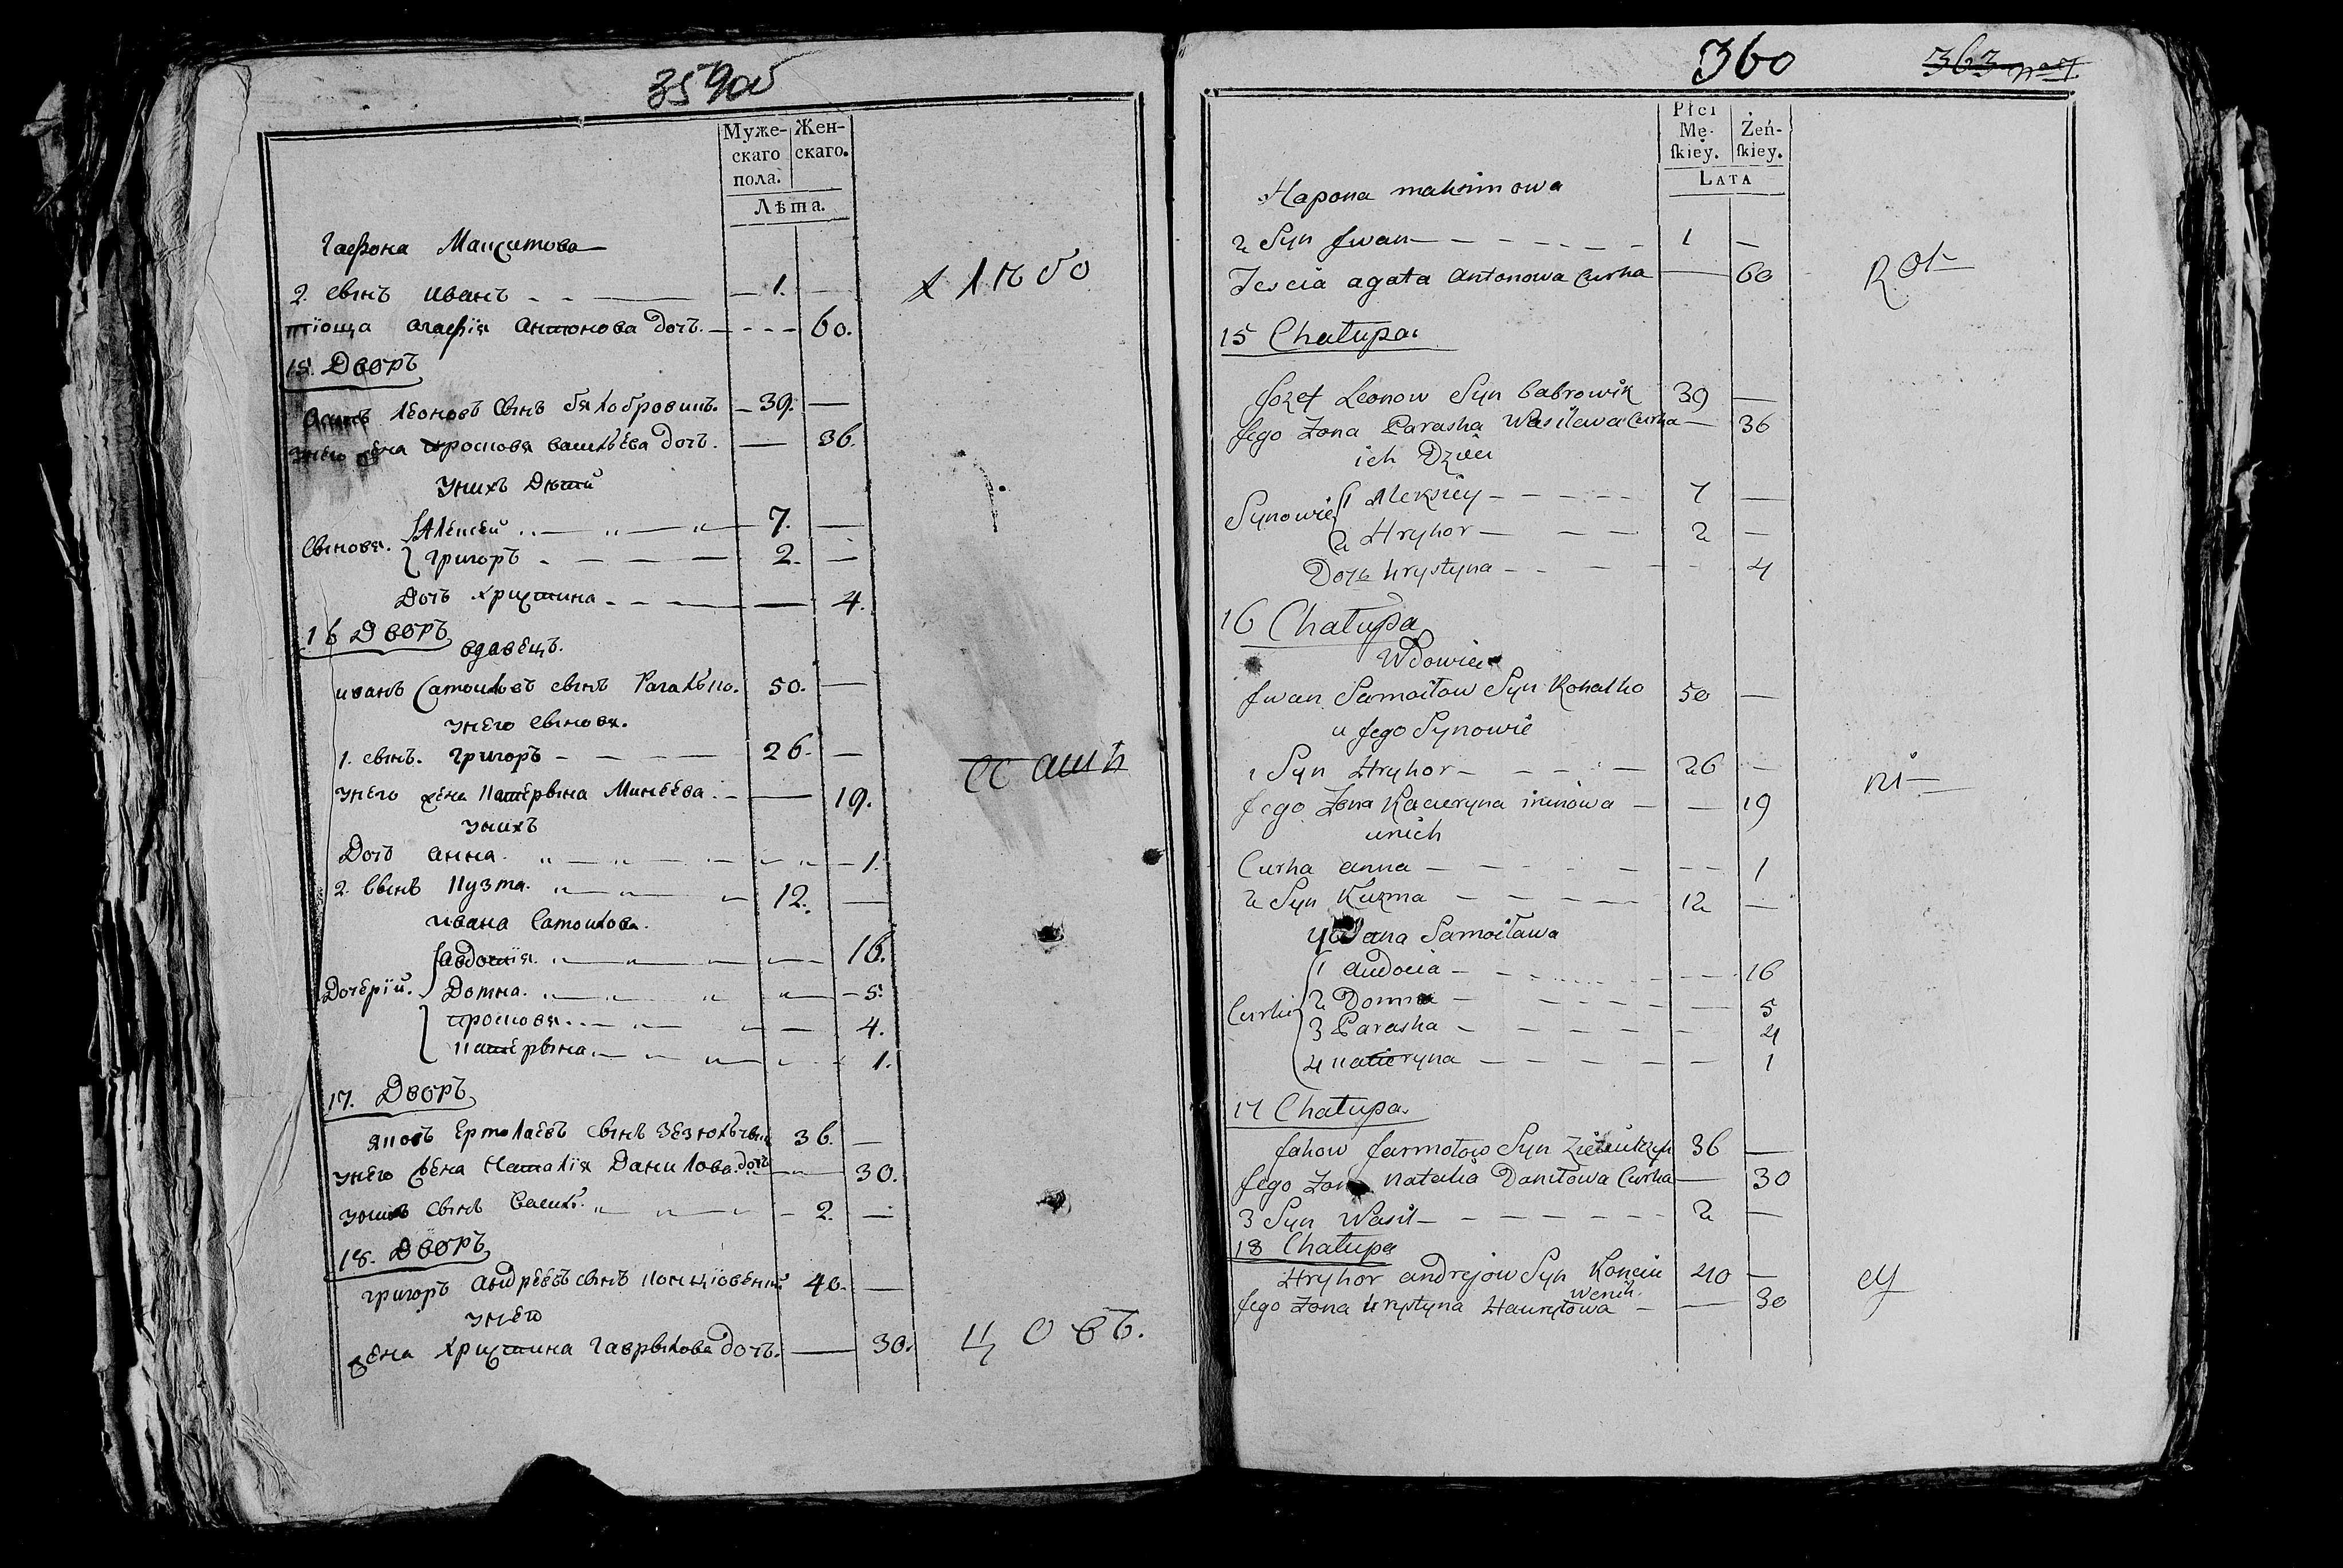 359об
Муже- Жен-
скаго скаго.
пола.
Лѣта.
Гаѳона Максимова
2. сынъ иванъ 1. —
тіоща агафія антонова дочъ. — 60.
15. Дворъ
леоновъ сынъ 39. —
унего жена просковя васильева дочъ. — 36.
унихъ дѣти
Сыновя. Алексей 7. —
григоръ 2. —
дочъ христина — 4.
16 Дворъ
вдавецъ.
иванъ Самоиловъ сынъ 50. —
унего сыновя.
1. сынъ. григоръ 26. —
унего жена катерына Минеева — 19.
унихъ
Дочъ анна. — 1.
2. сынъ кузма. 12. —
ивана Самоилова.
Дочерій. авдотія. — 16.
Домна. — 5.
просковя. — 4.
катерына — 1.
17. Дворъ
яковъ ермолаевъ сынъ 36. —
унего жена Наталія Данилова дочъ — 30.
унихъ сынъ василь. 2. —
18. Дворъ
григоръ андреевъ сынъ 40. —
унего
жена христина гаврылова дочъ. — 30.
цовъ.
360
363
Płci
Mę- Żeń-
ſkiey. ſkiey.
LATA
Hapona maksimowa
2 Syn Jwan 1 —
Tescia agata antonowa Curka — 60
15 Chałupa
Jozef Leonow Syn babrowik 39 —
Jego Zona Paraska Wasilawa Curka — 36
ich Dzieci
Synowie 1 Aleksiey 7 —
2 Hryhor 2 —
Дочь krystyna 4
16 Chałupa
Wdowiec
Jwan Samoiłow Syn Kohalko 50 —
u Jego Synowie
1 Syn Hryhor 26 —
Jego Zona Kacieryna minowa — 19
unich
Curka anna — 1
2 Syn Kuzma 12 —
Samoiława
Curki 1 audocia — 16
2 Domna — 5
3 Paraska — 4
4 katieryna — 1
17 Chałupa
Jakow Jarmołow Syn 36 —
Jego Zona natalia Daniłowa Curka — 30
3 Syn Wasil 2 —
18 Chałupa
Hryhor andrejow Syn Konciu 40 —
wenik.
Jego Zona krystyna Hauryłowa — 30